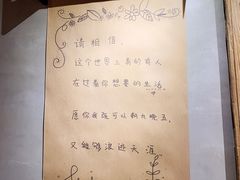 请相信,
这个世界上真的有人
在过着你想要的生活。
愿你我既可以朝九晚五,
又能够浪迹天涯